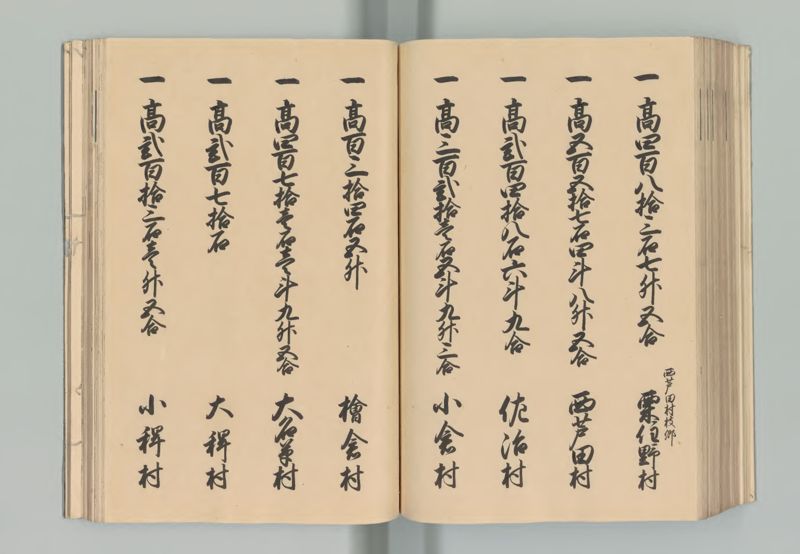 一 高四百八拾三石七升五合
西芦田村枝郷
栗住野村
一 高五百五拾七石四斗八升五合
西芦田村
一 高弐百四拾八石六斗九合
佐治村
一 高三百弐拾壱石五斗九升三合
小倉村
一 高百三拾四石五升
檜倉村
一 高四百七拾壱石壱斗九升五合
大名草村
一 高弐百七拾石
大稗村
一 高弐百拾三石壱升五合
小稗村